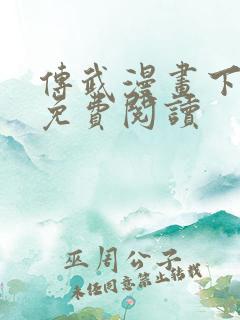 傳武漫畫下
免費閱讀
巫周公子
未经同意禁止转载